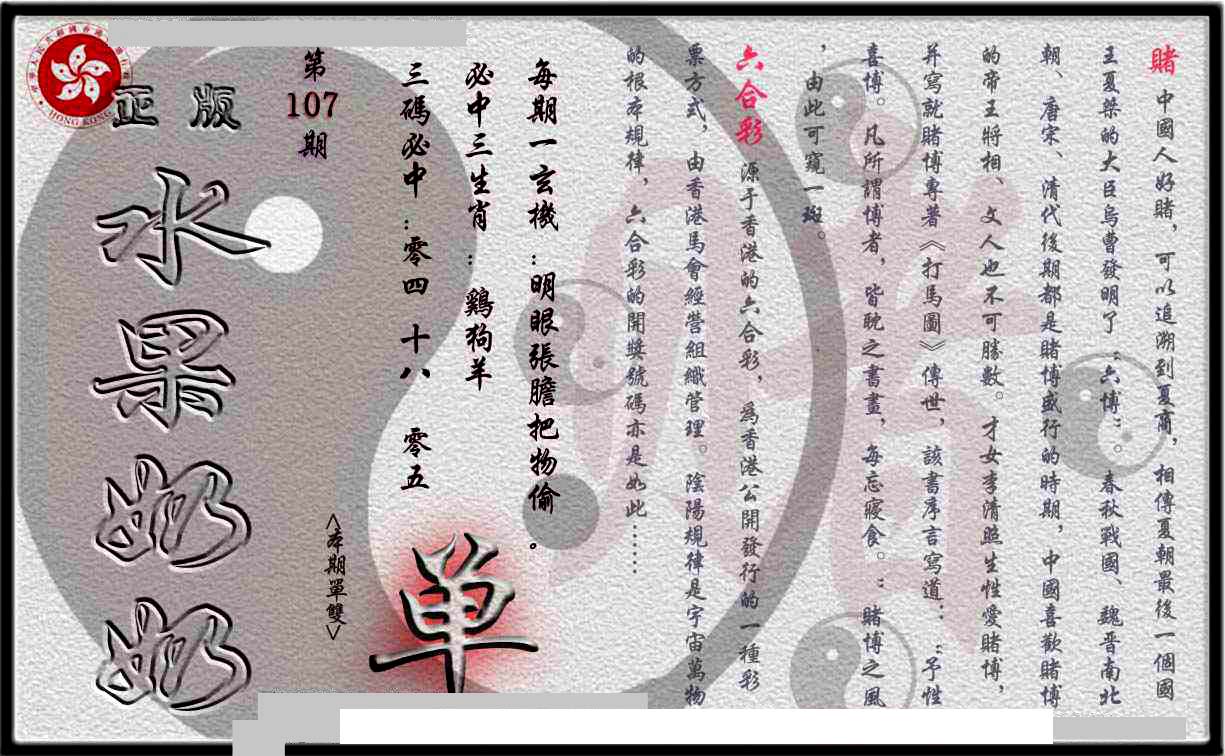 賭 中國人好賭，可以追溯到夏商，相傳夏朝最後一個國
王夏桀的大臣烏曹發明了“六博”。春秋戰國、魏晉南北
朝、唐宋、清代後期都是賭博盛行的時期，中國喜歡賭博
的帝王將相、文人也不可勝數。才女李清照生性愛賭博，
并寫就賭博專著《打馬圖》傳世，該書序言寫道：“予性
喜博。凡所謂博者，皆耽之書畫，每忘寢食。”賭博之風
，由此可窺一斑。
六合彩 源于香港的六合彩，爲香港公開發行的一種彩
票方式，由香港馬會經營組織管理。陰陽規律是宇宙萬物
的根本規律，六合彩的開獎號碼亦是如此……
每期一玄機：明眼張膽把物偷。
必中三生肖：鷄狗羊
三碼必中：零四 十八 零五
单
<本期單雙>
第107期
正版
水果奶奶
HONG KONG